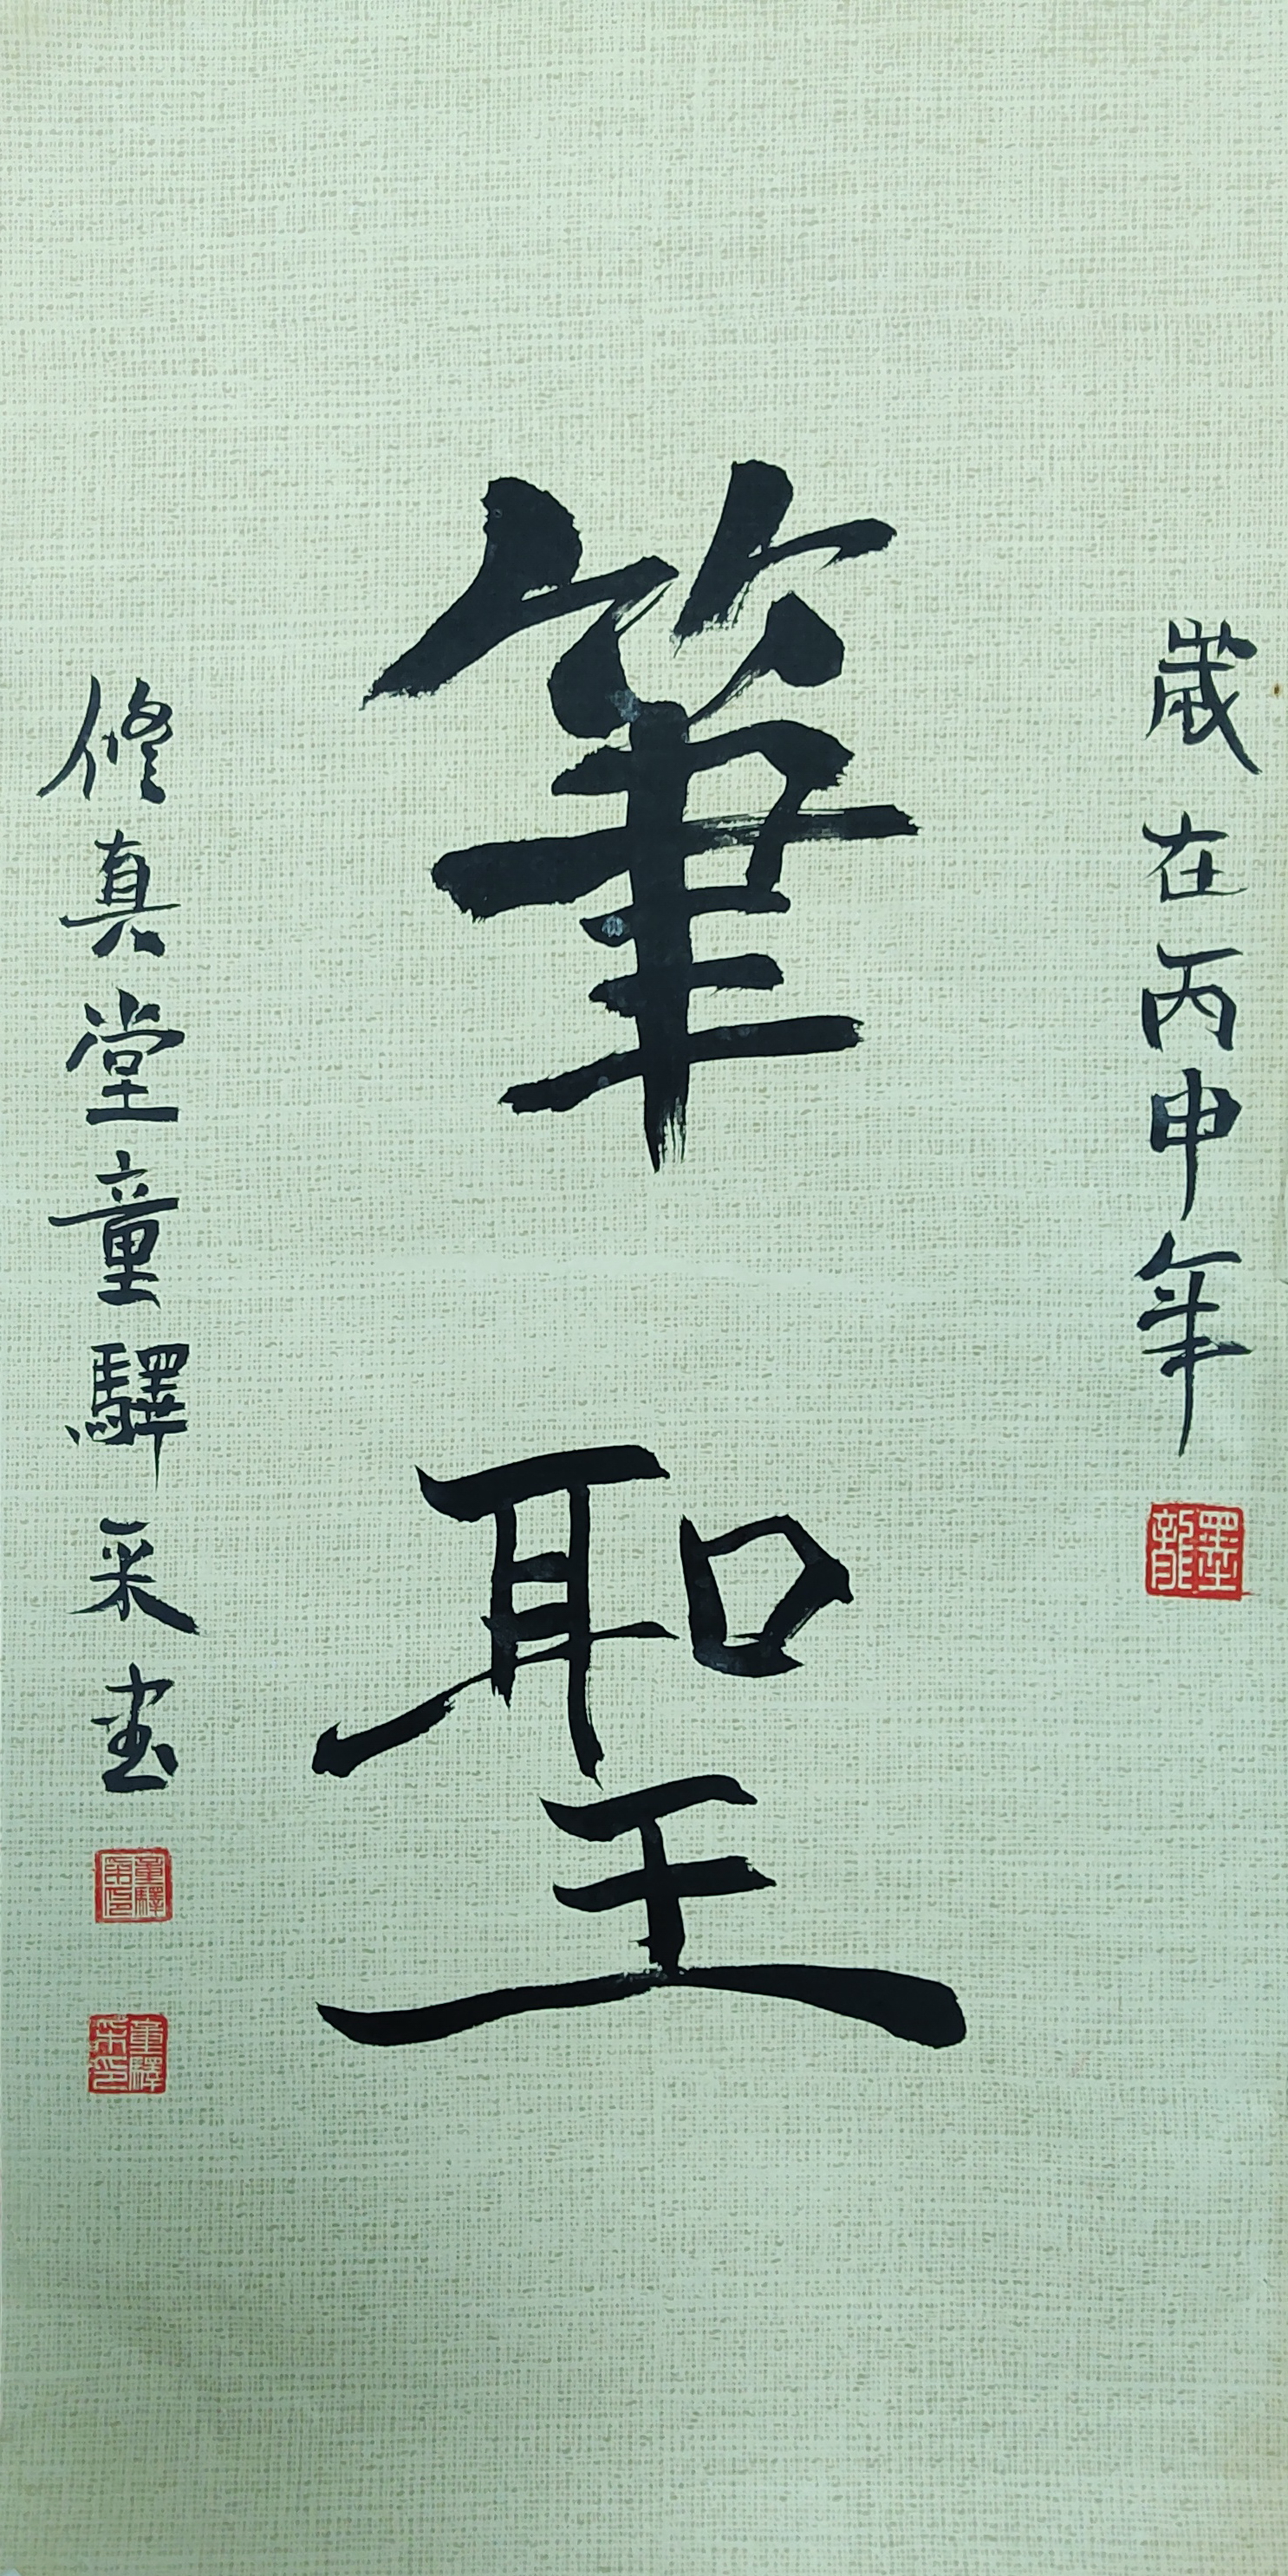 歲在丙申年
墨龍
筆聖
修真堂童驛采書
童驛采印
童驛采印